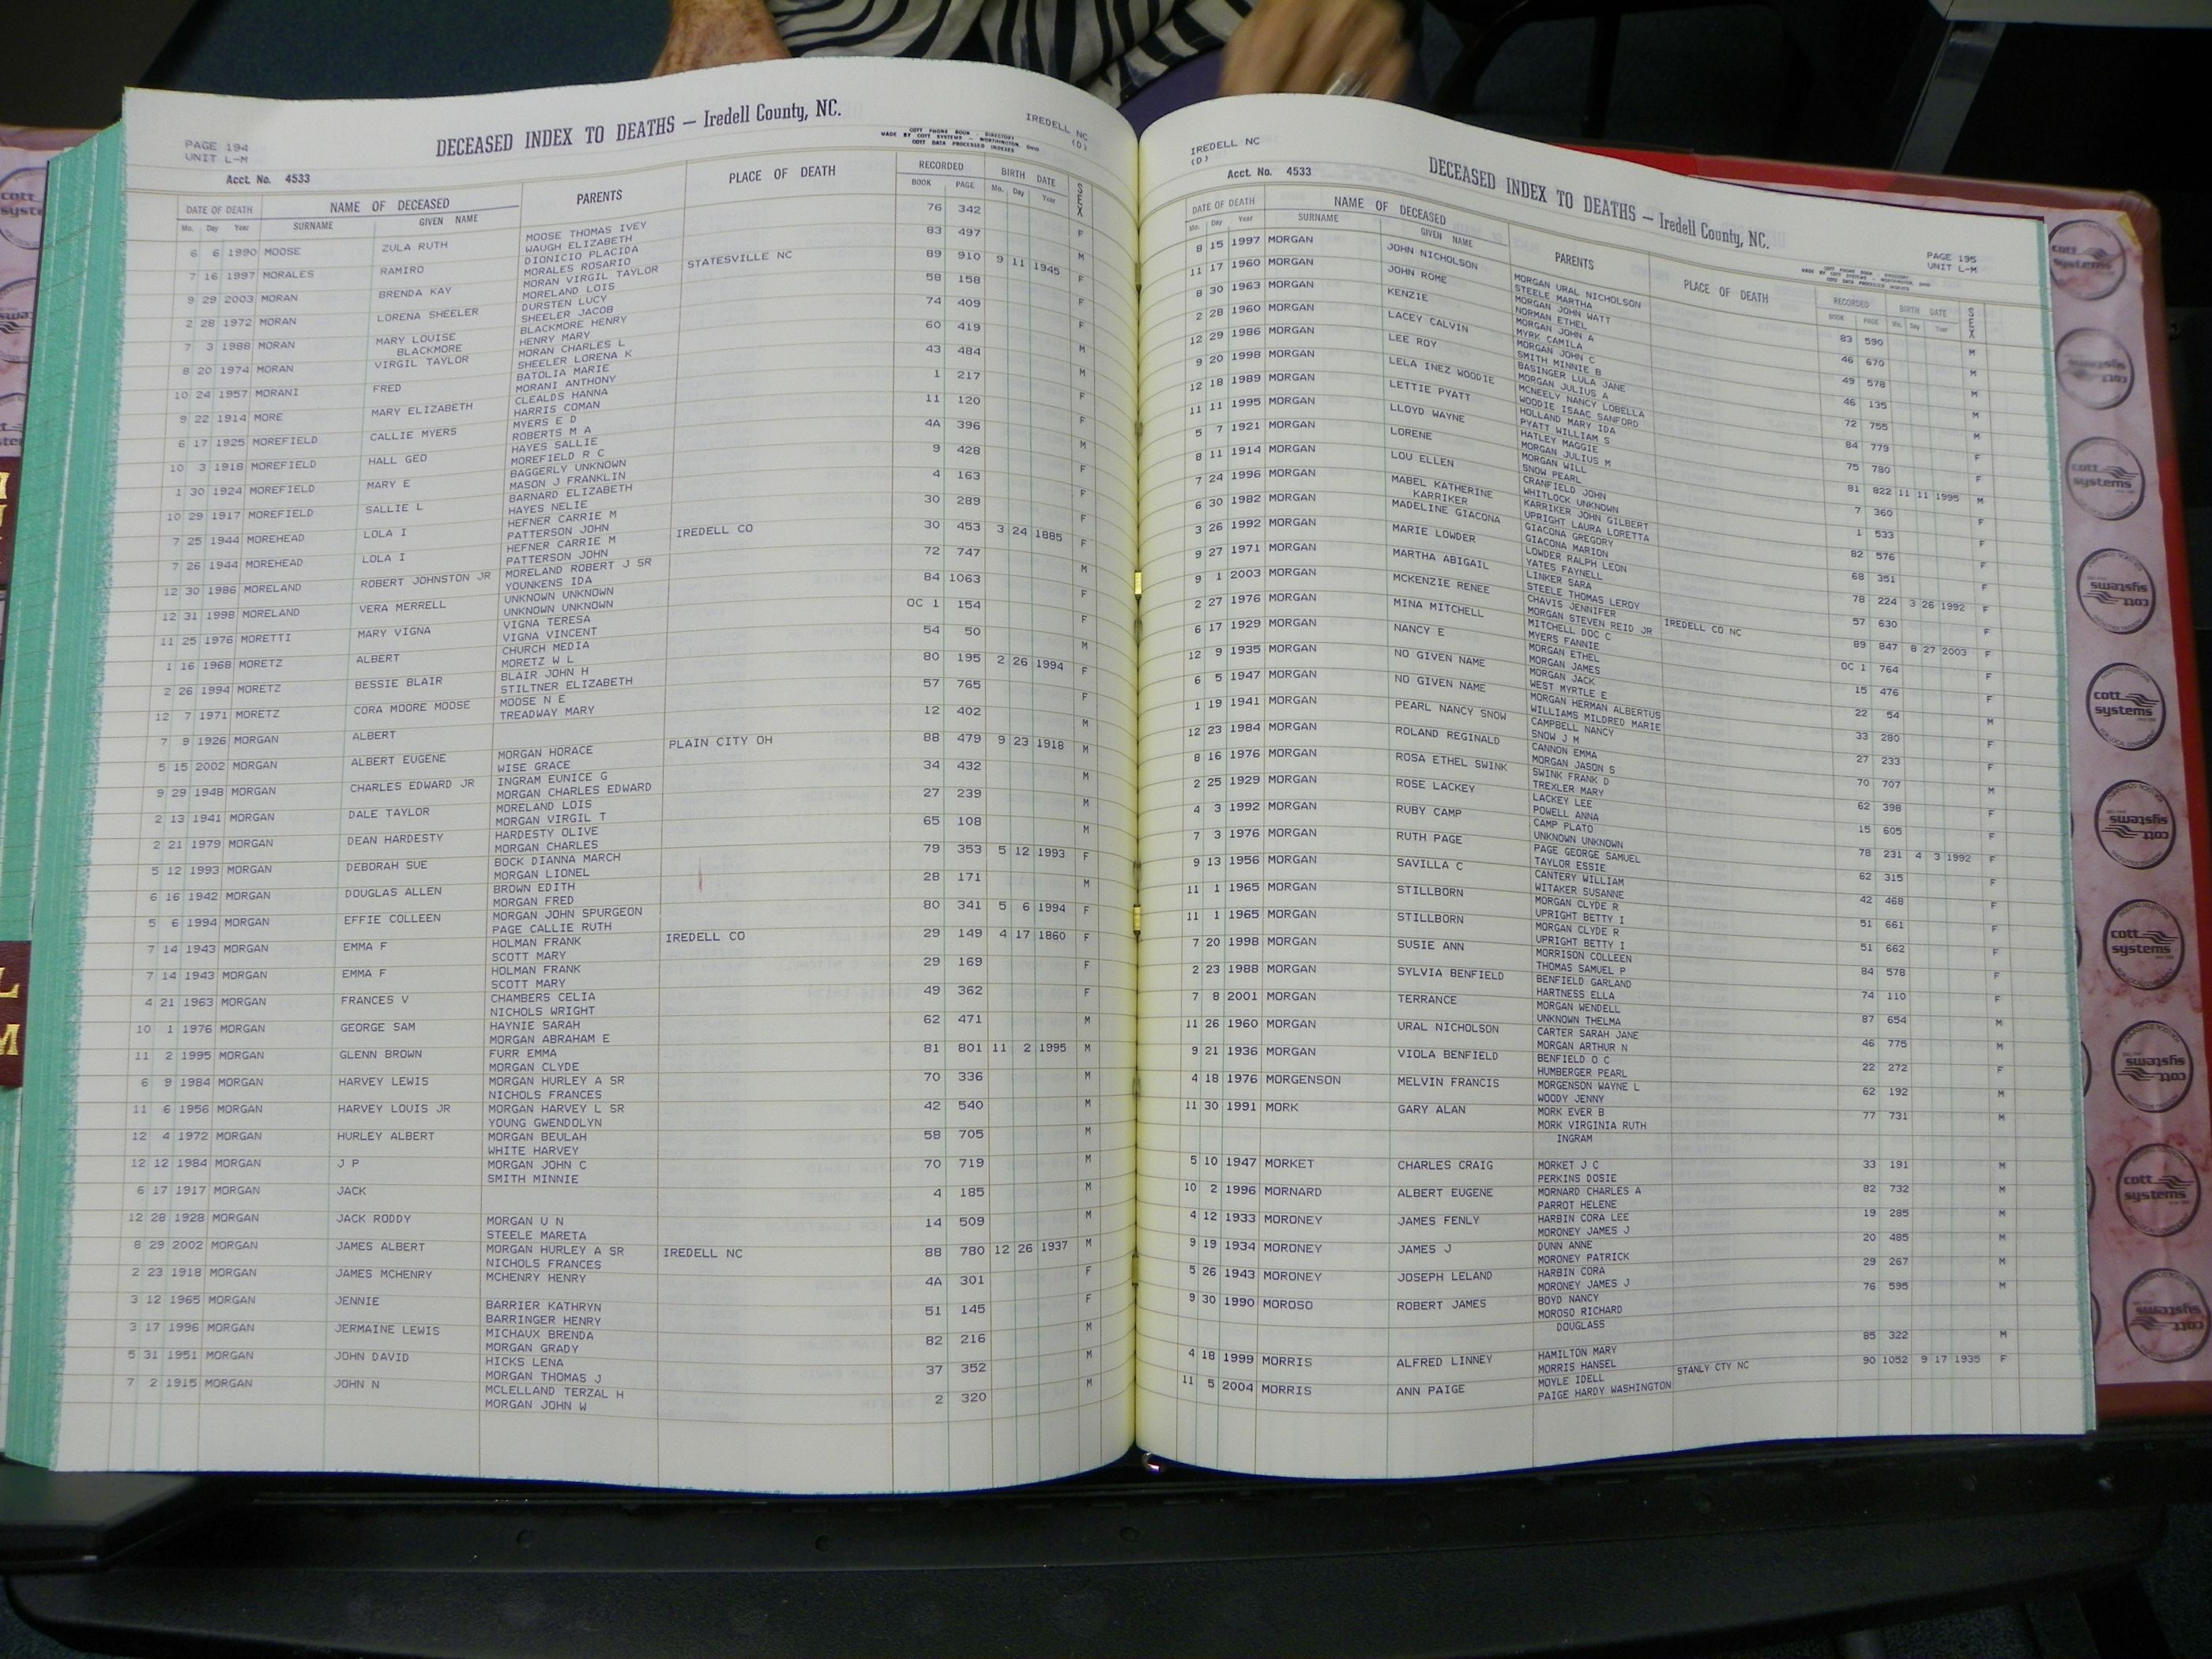 PAGE 194
UNIT L-M
DECEASED INDEX TO DEATHS — Iredell County, NC.
IREDELL NC
(D)
COTT PHONE BOOK - DIRECTORY
MADE BY COTT SYSTEMS - WORTHINGTON, OHIO
COTT DATA PROCESSED INDEXES
Acct. No. 4533
DATE OF DEATH NAME OF DECEASED PARENTS PLACE OF DEATH RECORDED BIRTH DATE SEX
Mo. Day Year SURNAME GIVEN NAME BOOK PAGE Mo. Day Year
6 6 1990 MOOSE ZULA RUTH MOOSE THOMAS IVEY 76 342 F
WAUGH ELIZABETH
7 16 1997 MORALES RAMIRO DIONICIO PLACIDA 83 497 M
MORALES ROSARIO
9 29 2003 MORAN BRENDA KAY MORAN VIRGIL TAYLOR STATESVILLE NC 89 910 9 11 1945 F
MORELAND LOIS
2 28 1972 MORAN LORENA SHEELER DURSTEN LUCY 58 158 F
SHEELER JACOB
7 3 1988 MORAN MARY LOUISE BLACKMORE HENRY 74 409 F
BLACKMORE HENRY MARY
8 20 1974 MORAN VIRGIL TAYLOR MORAN CHARLES L 60 419 M
SHEELER LORENA K
10 24 1957 MORANI FRED BATOLIA MARIE 43 484 M
MORANI ANTHONY
9 22 1914 MORE MARY ELIZABETH CLEALDS HANNA 1 217 F
HARRIS COMAN
6 17 1925 MOREFIELD CALLIE MYERS MYERS E D 11 120 F
ROBERTS M A
10 3 1918 MOREFIELD HALL GEO HAYES SALLIE 4A 396 M
MOREFIELD R C
1 30 1924 MOREFIELD MARY E BAGGERLY UNKNOWN 9 428 F
MASON J FRANKLIN
10 29 1917 MOREFIELD SALLIE L BARNARD ELIZABETH 4 163 F
HAYES NELIE
7 25 1944 MOREHEAD LOLA I HEFNER CARRIE M 30 289 F
PATTERSON JOHN
7 26 1944 MOREHEAD LOLA I HEFNER CARRIE M IREDELL CO 30 453 3 24 1885 F
PATTERSON JOHN
12 30 1986 MORELAND ROBERT JOHNSTON JR MORELAND ROBERT J SR 72 747 M
YOUNKENS IDA
12 31 1998 MORELAND VERA MERRELL UNKNOWN UNKNOWN 84 1063 F
UNKNOWN UNKNOWN
11 25 1976 MORETTI MARY VIGNA VIGNA TERESA OC 1 154 F
VIGNA VINCENT
1 16 1968 MORETZ ALBERT CHURCH MEDIA 54 50 M
MORETZ W L
2 26 1994 MORETZ BESSIE BLAIR BLAIR JOHN H 80 195 2 26 1994 F
STILTNER ELIZABETH
12 7 1971 MORETZ CORA MOORE MOOSE MOOSE N E 57 765 F
TREADWAY MARY
7 9 1926 MORGAN ALBERT 12 402 M
5 15 2002 MORGAN ALBERT EUGENE MORGAN HORACE PLAIN CITY OH 88 479 9 23 1918 M
WISE GRACE
9 29 1948 MORGAN CHARLES EDWARD JR INGRAM EUNICE G 34 432 M
MORGAN CHARLES EDWARD
2 13 1941 MORGAN DALE TAYLOR MORELAND LOIS 27 239 M
MORGAN VIRGIL T
2 21 1979 MORGAN DEAN HARDESTY HARDESTY OLIVE 65 108 M
MORGAN CHARLES
5 12 1993 MORGAN DEBORAH SUE BOCK DIANNA MARCH 79 353 5 12 1993 F
MORGAN LIONEL
6 16 1942 MORGAN DOUGLAS ALLEN BROWN EDITH 28 171 M
MORGAN FRED
5 6 1994 MORGAN EFFIE COLLEEN MORGAN JOHN SPURGEON 80 341 5 6 1994 F
PAGE CALLIE RUTH
7 14 1943 MORGAN EMMA F HOLMAN FRANK IREDELL CO 29 149 4 17 1860 F
SCOTT MARY
7 14 1943 MORGAN EMMA F HOLMAN FRANK 29 169 F
SCOTT MARY
4 21 1963 MORGAN FRANCES V CHAMBERS CELIA 49 362 F
NICHOLS WRIGHT
10 1 1976 MORGAN GEORGE SAM HAYNIE SARAH 62 471 M
MORGAN ABRAHAM E
11 2 1995 MORGAN GLENN BROWN FURR EMMA 81 801 11 2 1995 M
MORGAN CLYDE
6 9 1984 MORGAN HARVEY LEWIS MORGAN HURLEY A SR 70 336 M
NICHOLS FRANCES
11 6 1956 MORGAN HARVEY LOUIS JR MORGAN HARVEY L SR 42 540 M
YOUNG GWENDOLYN
12 4 1972 MORGAN HURLEY ALBERT MORGAN BEULAH 58 705 M
WHITE HARVEY
12 12 1984 MORGAN J P MORGAN JOHN C 70 719 M
SMITH MINNIE
6 17 1917 MORGAN JACK 4 185 M
12 28 1928 MORGAN JACK RODDY MORGAN U N 14 509 M
STEELE MARETA
8 29 2002 MORGAN JAMES ALBERT MORGAN HURLEY A SR IREDELL NC 88 780 12 26 1937 M
NICHOLS FRANCES
2 23 1918 MORGAN JAMES MCHENRY MCHENRY HENRY 4A 301 F
3 12 1965 MORGAN JENNIE BARRIER KATHRYN 51 145 F
BARRINGER HENRY
3 17 1996 MORGAN JERMAINE LEWIS MICHAUX BRENDA 82 216 M
MORGAN GRADY
5 31 1951 MORGAN JOHN DAVID HICKS LENA 37 352 M
MORGAN THOMAS J
7 2 1915 MORGAN JOHN N MCLELLAND TERZAL H 2 320 M
MORGAN JOHN W
IREDELL NC
(D)
DECEASED INDEX TO DEATHS — Iredell County, NC.
PAGE 195
UNIT L-M
Acct. No. 4533
DATE OF DEATH NAME OF DECEASED PARENTS PLACE OF DEATH RECORDED BIRTH DATE SEX
Mo. Day Year SURNAME GIVEN NAME BOOK PAGE Mo. Day Year
8 15 1997 MORGAN JOHN NICHOLSON MORGAN URAL NICHOLSON 83 590 M
STEELE MARTHA
11 17 1960 MORGAN JOHN ROME MORGAN JOHN WATT 46 670 M
NORMAN ETHEL
8 30 1963 MORGAN KENZIE MORGAN JOHN A 49 578 M
MYRK CAMILA
2 28 1960 MORGAN LACEY CALVIN MORGAN JOHN C 46 135 M
SMITH MINNIE B
12 29 1986 MORGAN LEE ROY BASINGER LULA JANE 72 755 M
MORGAN JULIUS A
9 20 1998 MORGAN LELA INEZ WOODIE MCNEELY NANCY LOBELLA 84 779 F
WOODIE ISAAC SANFORD
12 18 1989 MORGAN LETTIE PYATT HOLLAND MARY IDA 75 780 F
PYATT WILLIAM S
11 11 1995 MORGAN LLOYD WAYNE HATLEY MAGGIE 81 822 11 11 1995 M
MORGAN JULIUS M
5 7 1921 MORGAN LORENE MORGAN WILL 7 360 F
SNOW PEARL
8 11 1914 MORGAN LOU ELLEN CRANFIELD JOHN 1 533 F
WHITLOCK UNKNOWN
7 24 1996 MORGAN MABEL KATHERINE KARRIKER JOHN GILBERT 82 576 F
KARRIKER UPRIGHT LAURA LORETTA
6 30 1982 MORGAN MADELINE GIACONA GIACONA GREGORY 68 351 F
GIACONA MARION
3 26 1992 MORGAN MARIE LOWDER LOWDER RALPH LEON 78 224 3 26 1992 F
YATES FAYNELL
9 27 1971 MORGAN MARTHA ABIGAIL LINKER SARA 57 630 F
STEELE THOMAS LEROY
9 1 2003 MORGAN MCKENZIE RENEE CHAVIS JENNIFER IREDELL CO NC 89 847 8 27 2003 F
MORGAN STEVEN REID JR
2 27 1976 MORGAN MINA MITCHELL MITCHELL DOC C OC 1 764 F
MYERS FANNIE
6 17 1929 MORGAN NANCY E MORGAN ETHEL 15 476 F
MORGAN JAMES
12 9 1935 MORGAN NO GIVEN NAME MORGAN JACK 22 54 M
WEST MYRTLE E
6 5 1947 MORGAN NO GIVEN NAME MORGAN HERMAN ALBERTUS 33 280 F
WILLIAMS MILDRED MARIE
1 19 1941 MORGAN PEARL NANCY SNOW CAMPBELL NANCY 27 233 F
SNOW J M
12 23 1984 MORGAN ROLAND REGINALD CANNON EMMA 70 707 M
MORGAN JASON S
8 16 1976 MORGAN ROSA ETHEL SWINK SWINK FRANK D 62 398 F
TREXLER MARY
2 25 1929 MORGAN ROSE LACKEY LACKEY LEE 15 605 F
POWELL ANNA
4 3 1992 MORGAN RUBY CAMP CAMP PLATO 78 231 4 3 1992 F
UNKNOWN UNKNOWN
7 3 1976 MORGAN RUTH PAGE PAGE GEORGE SAMUEL 62 315 F
TAYLOR ESSIE
9 13 1956 MORGAN SAVILLA C CANTERY WILLIAM 42 468 F
WITAKER SUSANNE
11 1 1965 MORGAN STILLBORN MORGAN CLYDE R 51 661 F
UPRIGHT BETTY I
11 1 1965 MORGAN STILLBORN MORGAN CLYDE R 51 662 F
UPRIGHT BETTY I
7 20 1998 MORGAN SUSIE ANN MORRISON COLLEEN 84 578 F
THOMAS SAMUEL P
2 23 1988 MORGAN SYLVIA BENFIELD BENFIELD GARLAND 74 110 F
HARTNESS ELLA
7 8 2001 MORGAN TERRANCE MORGAN WENDELL 87 654 M
UNKNOWN THELMA
11 26 1960 MORGAN URAL NICHOLSON CARTER SARAH JANE 46 775 M
MORGAN ARTHUR N
9 21 1936 MORGAN VIOLA BENFIELD BENFIELD O C 22 272 F
HUMBERGER PEARL
4 18 1976 MORGENSON MELVIN FRANCIS MORGENSON WAYNE L 62 192 M
WOODY JENNY
11 30 1991 MORK GARY ALAN MORK EVER B 77 731 M
MORK VIRGINIA RUTH
INGRAM
5 10 1947 MORKET CHARLES CRAIG MORKET J C 33 191 M
PERKINS DOSIE
10 2 1996 MORNARD ALBERT EUGENE MORNARD CHARLES A 82 732 M
PARROT HELENE
4 12 1933 MORONEY JAMES FENLY HARBIN CORA LEE 19 285 M
MORONEY JAMES J
9 19 1934 MORONEY JAMES J DUNN ANNE 20 485 M
MORONEY PATRICK
5 26 1943 MORONEY JOSEPH LELAND HARBIN CORA 29 267 M
MORONEY JAMES J
9 30 1990 MOROSO ROBERT JAMES BOYD NANCY 76 595 M
MOROSO RICHARD
DOUGLASS
4 18 1999 MORRIS ALFRED LINNEY HAMILTON MARY 85 322 M
MORRIS HANSEL
11 5 2004 MORRIS ANN PAIGE MOYLE IDELL STANLY CTY NC 90 1052 9 17 1935 F
PAIGE HARDY WASHINGTON
cott
systems
cott
systems
cott
systems
cott
systems